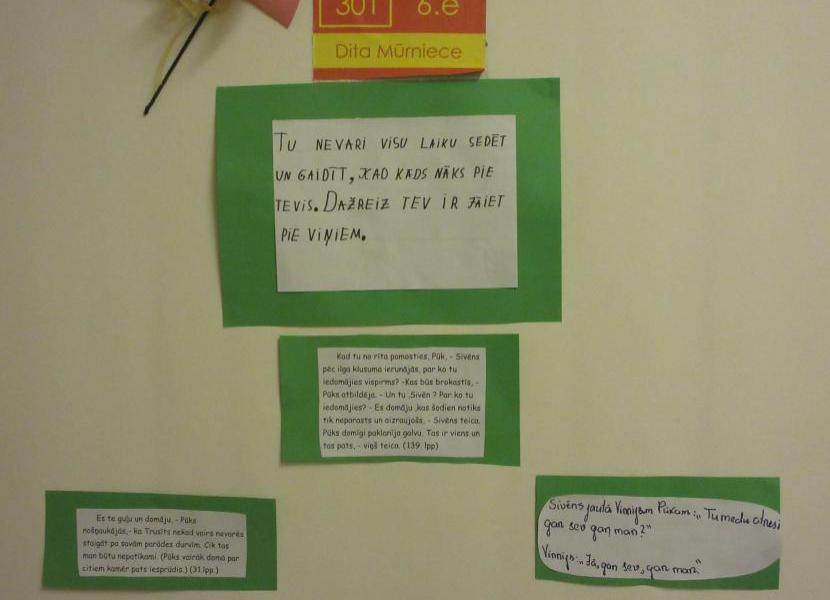 301 6.e
Dita Mūrniece
TU NEVARI VISU LAIKU SEDĒT
UN GAIDĪT, KAD KĀDS NĀKS PIE
TEVIS. DAŽREIZ TEV IR JĀIET
PIE VIŅIEM.
Kad tu no rīta pamosties, Pūk, - Sivēns
pēc ilga klusuma ierunājās, par ko tu
iedomājies vispirms? -Kas būs brokastīs, -
Pūks atbildēja. - Un tu ,Sivēn ? Par ko tu
iedomājies? - Es domāju ,kas šodien notiks
tik neparasts un aizraujošs, - Sivēns teica.
Pūks domīgi paklanīja galvu. Tas ir viens un
tas pats, - viņš teica. (139. lpp)
Es te guļu un domāju, - Pūks
nošņaukājās,- ka Trusītis nekad vairs nevarēs
staigāt pa savām parādes durvīm. Cik tas
man būtu nepatīkami. (Pūks vairāk domā par
citiem kamēr pats iesprūdis.) (31.lpp.)
Sivēns jautā Vinnijam Pūkam: „Tu medu atnesi
gan sev gan man?"
Vinnijs: „Jā, gan sev, gan man."